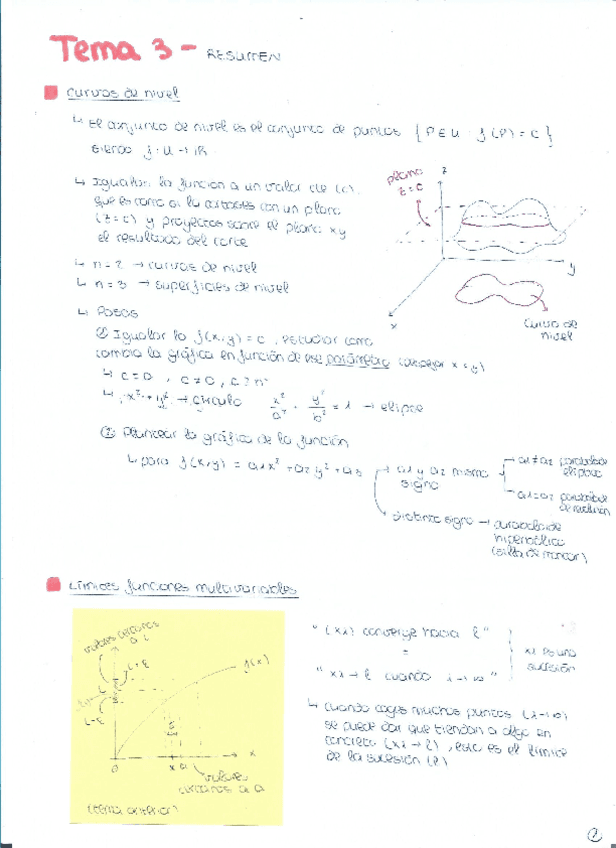 Tema 3 - RESUMEN
curvas de nivel
↳ El conjunto de nivel es el conjunto de puntos { P ∈ U f(P) = C }
siendo f: U → IR
↳ Igualar la función a un valor de (c),
que es como si la cortases con un plano
(z=c) y proyectas sobre el plano xy
el resultado del corte
plano
z=c
z
y
x
curva de
nivel
↳ n=2 → curvas de nivel
↳ n=3 → superficies de nivel
↳ Pasos
① Igualar la f(x,y) = c, estudiar como
cambia la gráfica en función de ese parámetro (despejar x e y)
↳ c=0, c≠0, c=n²
↳ x²+y² → círculo x²/a² y²/b² = 1 → elipse
② Plantear la gráfica de la función
↳ para f(x,y) = a1x² + a2y² + a3
a1 y a2 mismo
signo
a1≠a2 paraboloide
elíptico
a1=a2 paraboloide
de revolución
distinto signo → paraboloide
hiperbólico
(silla de montar)
Límites funciones multivariables
valores cercanos
a L
L+ε
L
L-ε
f(x)
0
x a
x
valores
cercanos a a
(tema anterior)
"(xλ) converge hacia l"
=
"xλ → l cuando λ→∞"
xλ es una
sucesión
↳ cuando coges muchos puntos (λ→∞)
se puede dar que tiendan a algo en
concreto (xλ → l), esto es el límite
de la sucesión (l)
②